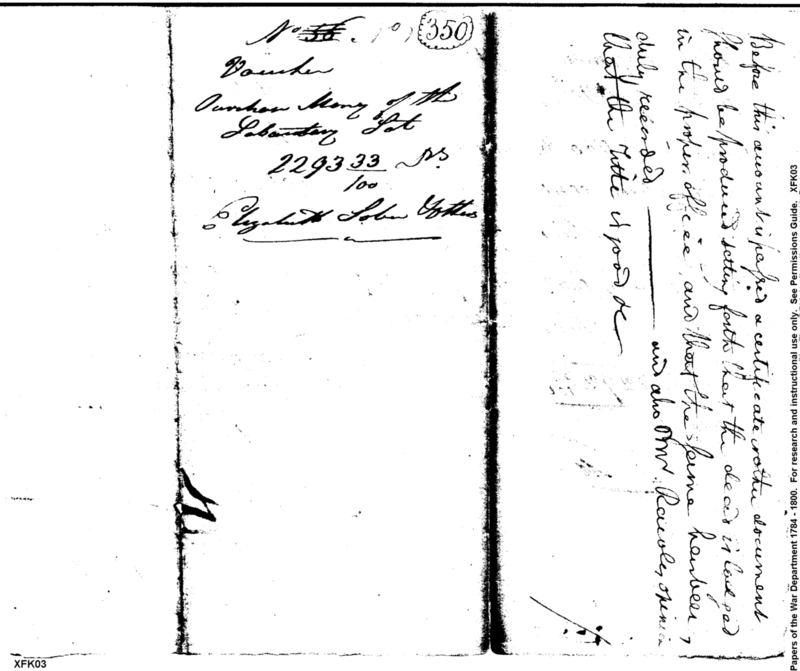 No 56. 350
Voucher
Purchase Money of the
Laboratory Lot
2293 33/100 Drs
Elizabeth Sober & others
Before this amount is passed a certificate or other document
should be produced setting forth that the deed is lodged
in the proper office and that the same has been
duly recorded and also Mr. Rawles opinion
that the Title is good &c
XFK03
Papers of the War Department 1784 - 1800. For research and instructional use only. See Permissions Guide. XFK03